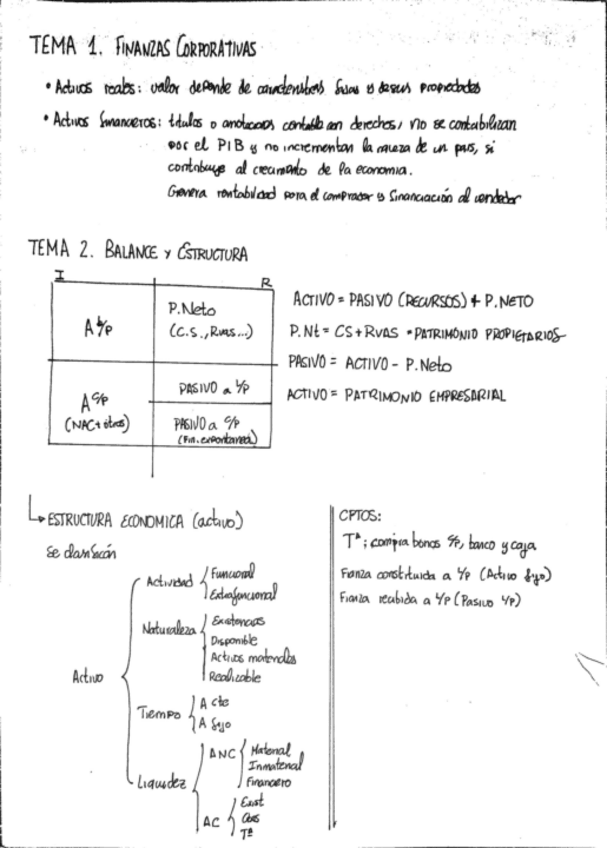 TEMA 1. FINANZAS CORPORATIVAS
• Activos reales: valor depende de características físicas y de sus propiedades
• Activos financieros: títulos o anotaciones contables con derechos, no se contabilizan
por el PIB y no incrementan la riqueza de un país, si
contribuye al crecimiento de la economía.
Genera rentabilidad para el comprador y financiación al vendedor
TEMA 2. BALANCE Y ESTRUCTURA
I R
A l/p
P.Neto
(C.S., Rvas...)
A c/p
(NAC + otros)
PASIVO a l/p
PASIVO a c/p
(Fin. espontanea)
ACTIVO = PASIVO (RECURSOS) + P.NETO
P.Nt = CS + RVAS • PATRIMONIO PROPIETARIOS
PASIVO = ACTIVO - P.Neto
ACTIVO = PATRIMONIO EMPRESARIAL
ESTRUCTURA ECONOMICA (activo)
Se clasifican
Activo
Actividad
Funcional
Extrafuncional
Naturaleza
Existencias
Disponible
Activos materiales
Realizable
Tiempo
A cte
A fijo
Liquidez
ANC
Material
Inmaterial
Financiero
AC
Exist
Tª
CPTOS:
Tª; compra bonos c/p, banco y caja
Fianza constituida a l/p (Activo fijo)
Fianza recibida a l/p (Pasivo l/p)